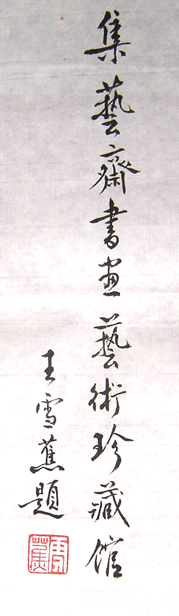 集藝齋書画藝術珍藏館
王雪蕉題